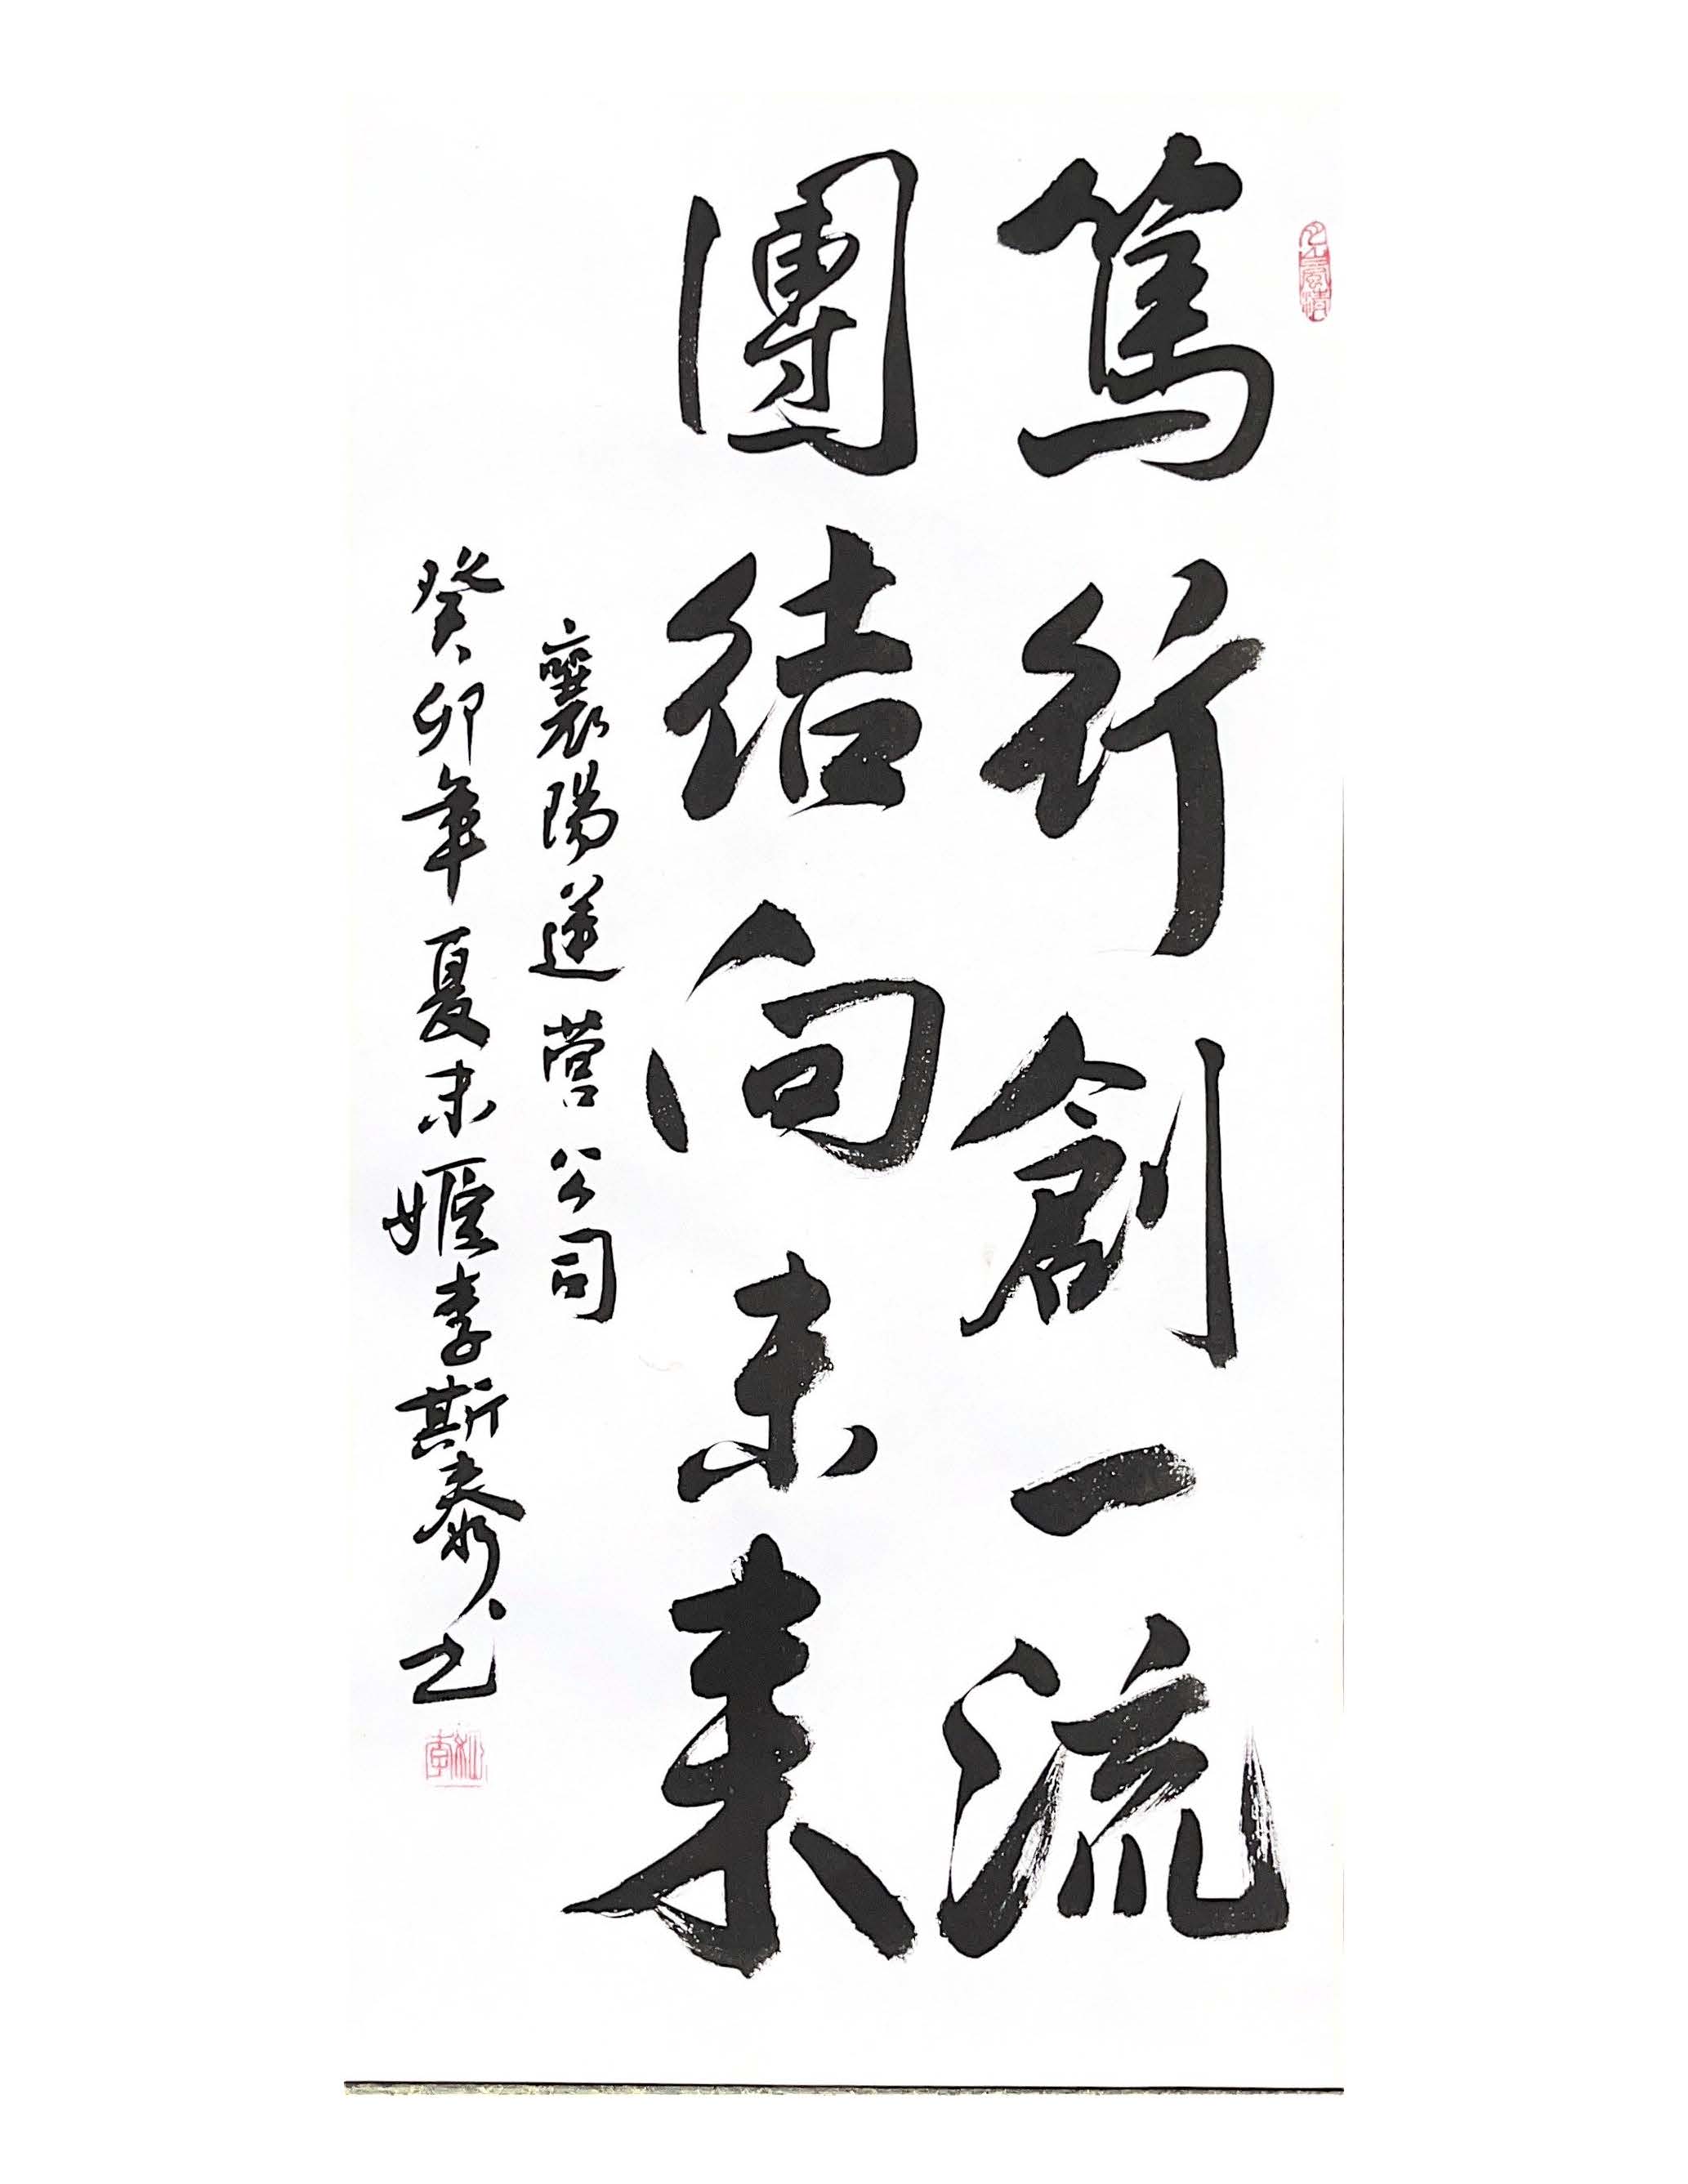 篤行創一流
團結向未来
襄陽運營公司
癸卯年夏末姬李斯泰书